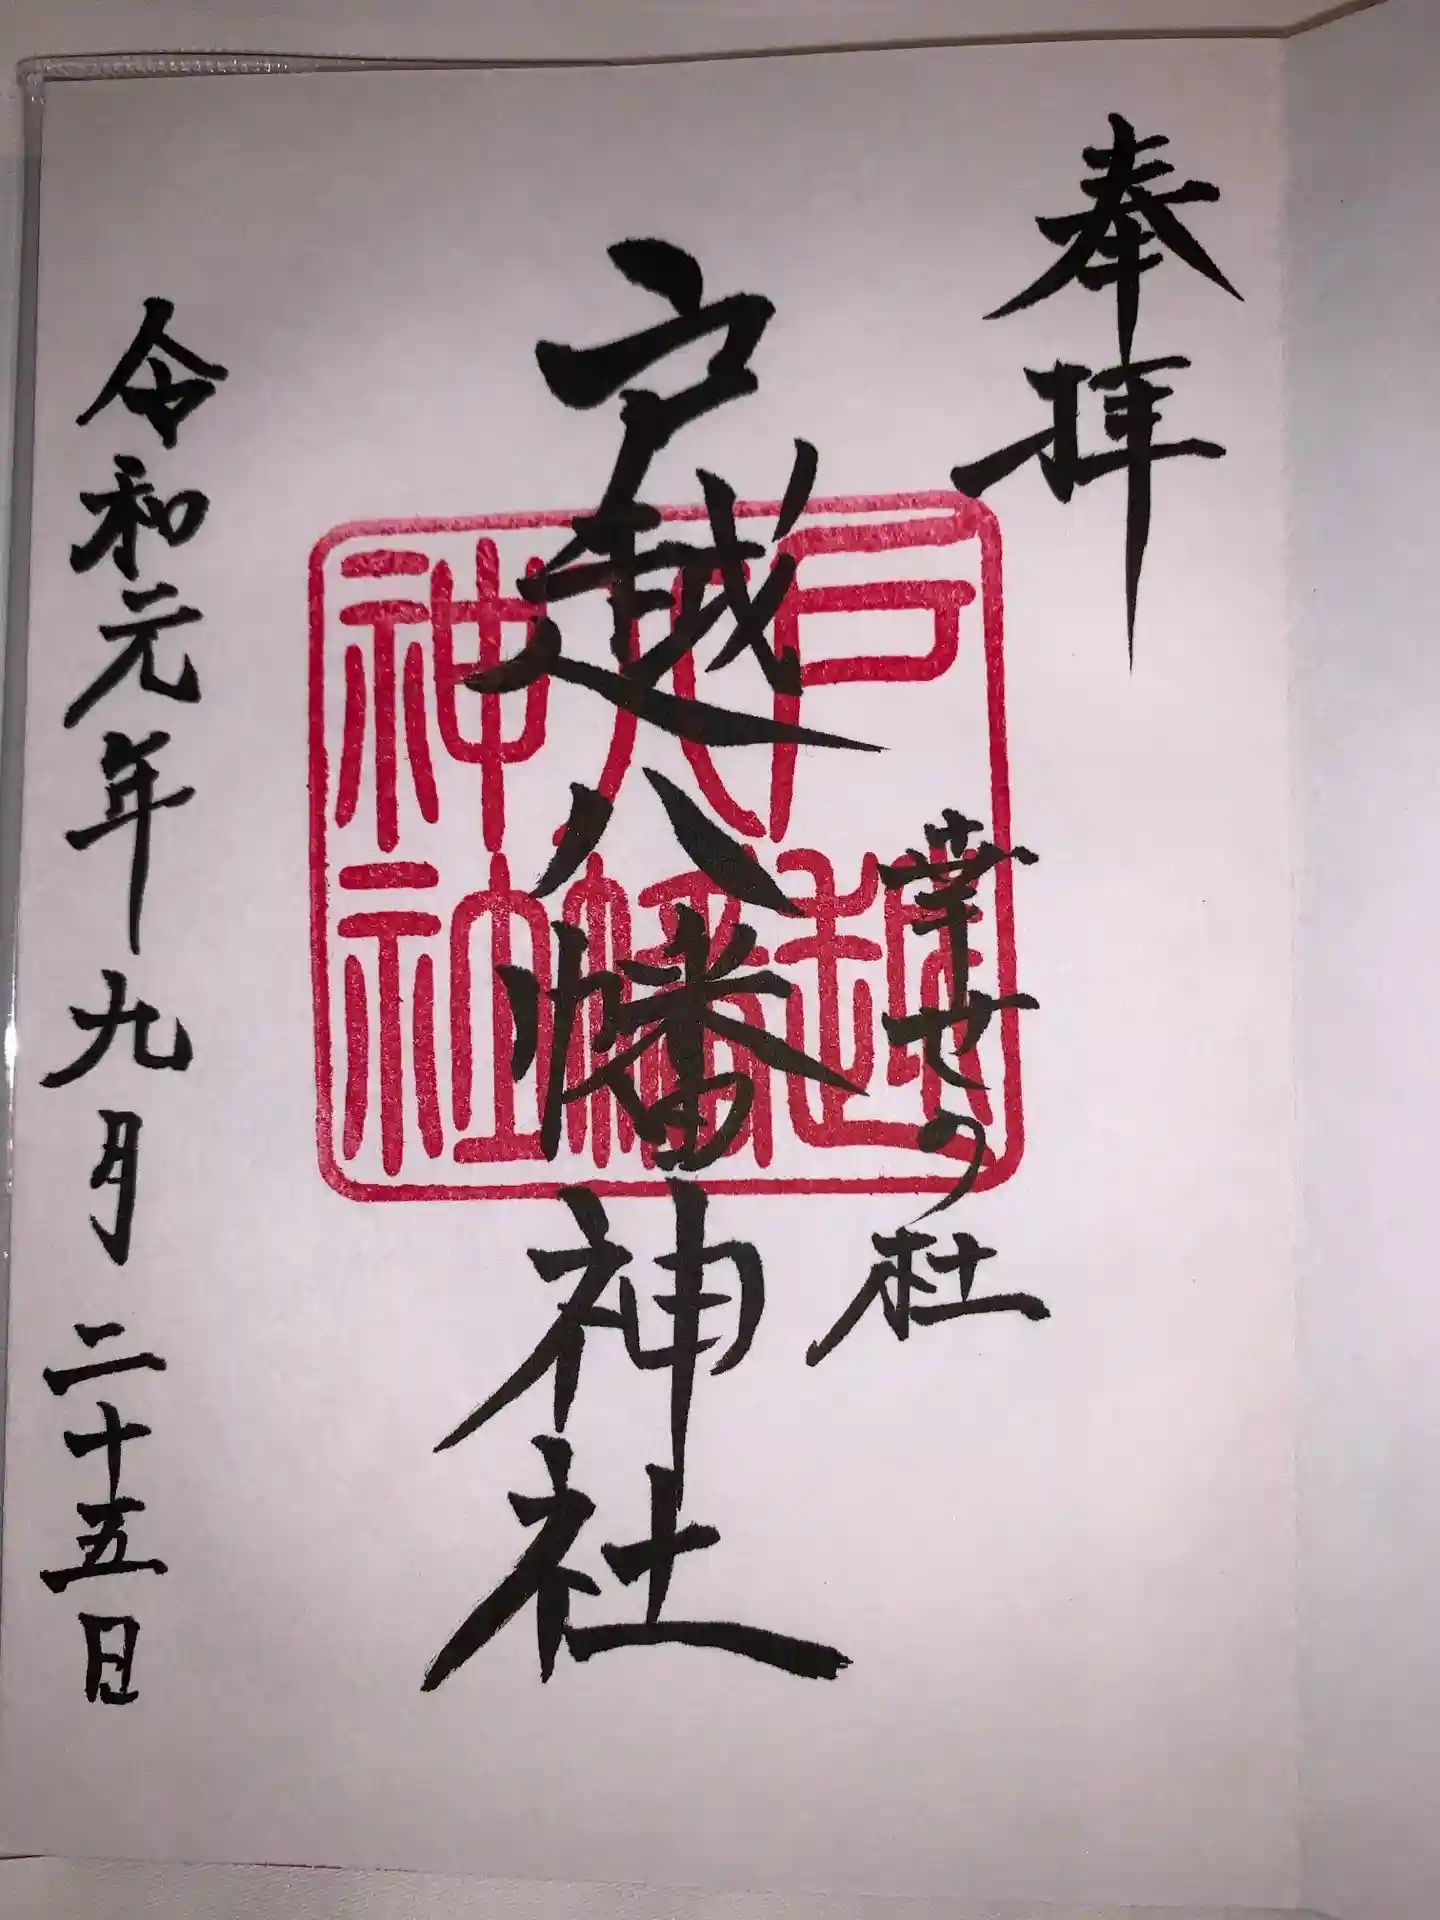 奉拝
幸せの社
戸越八幡神社
戸越
八幡
神社
令和元年九月二十五日